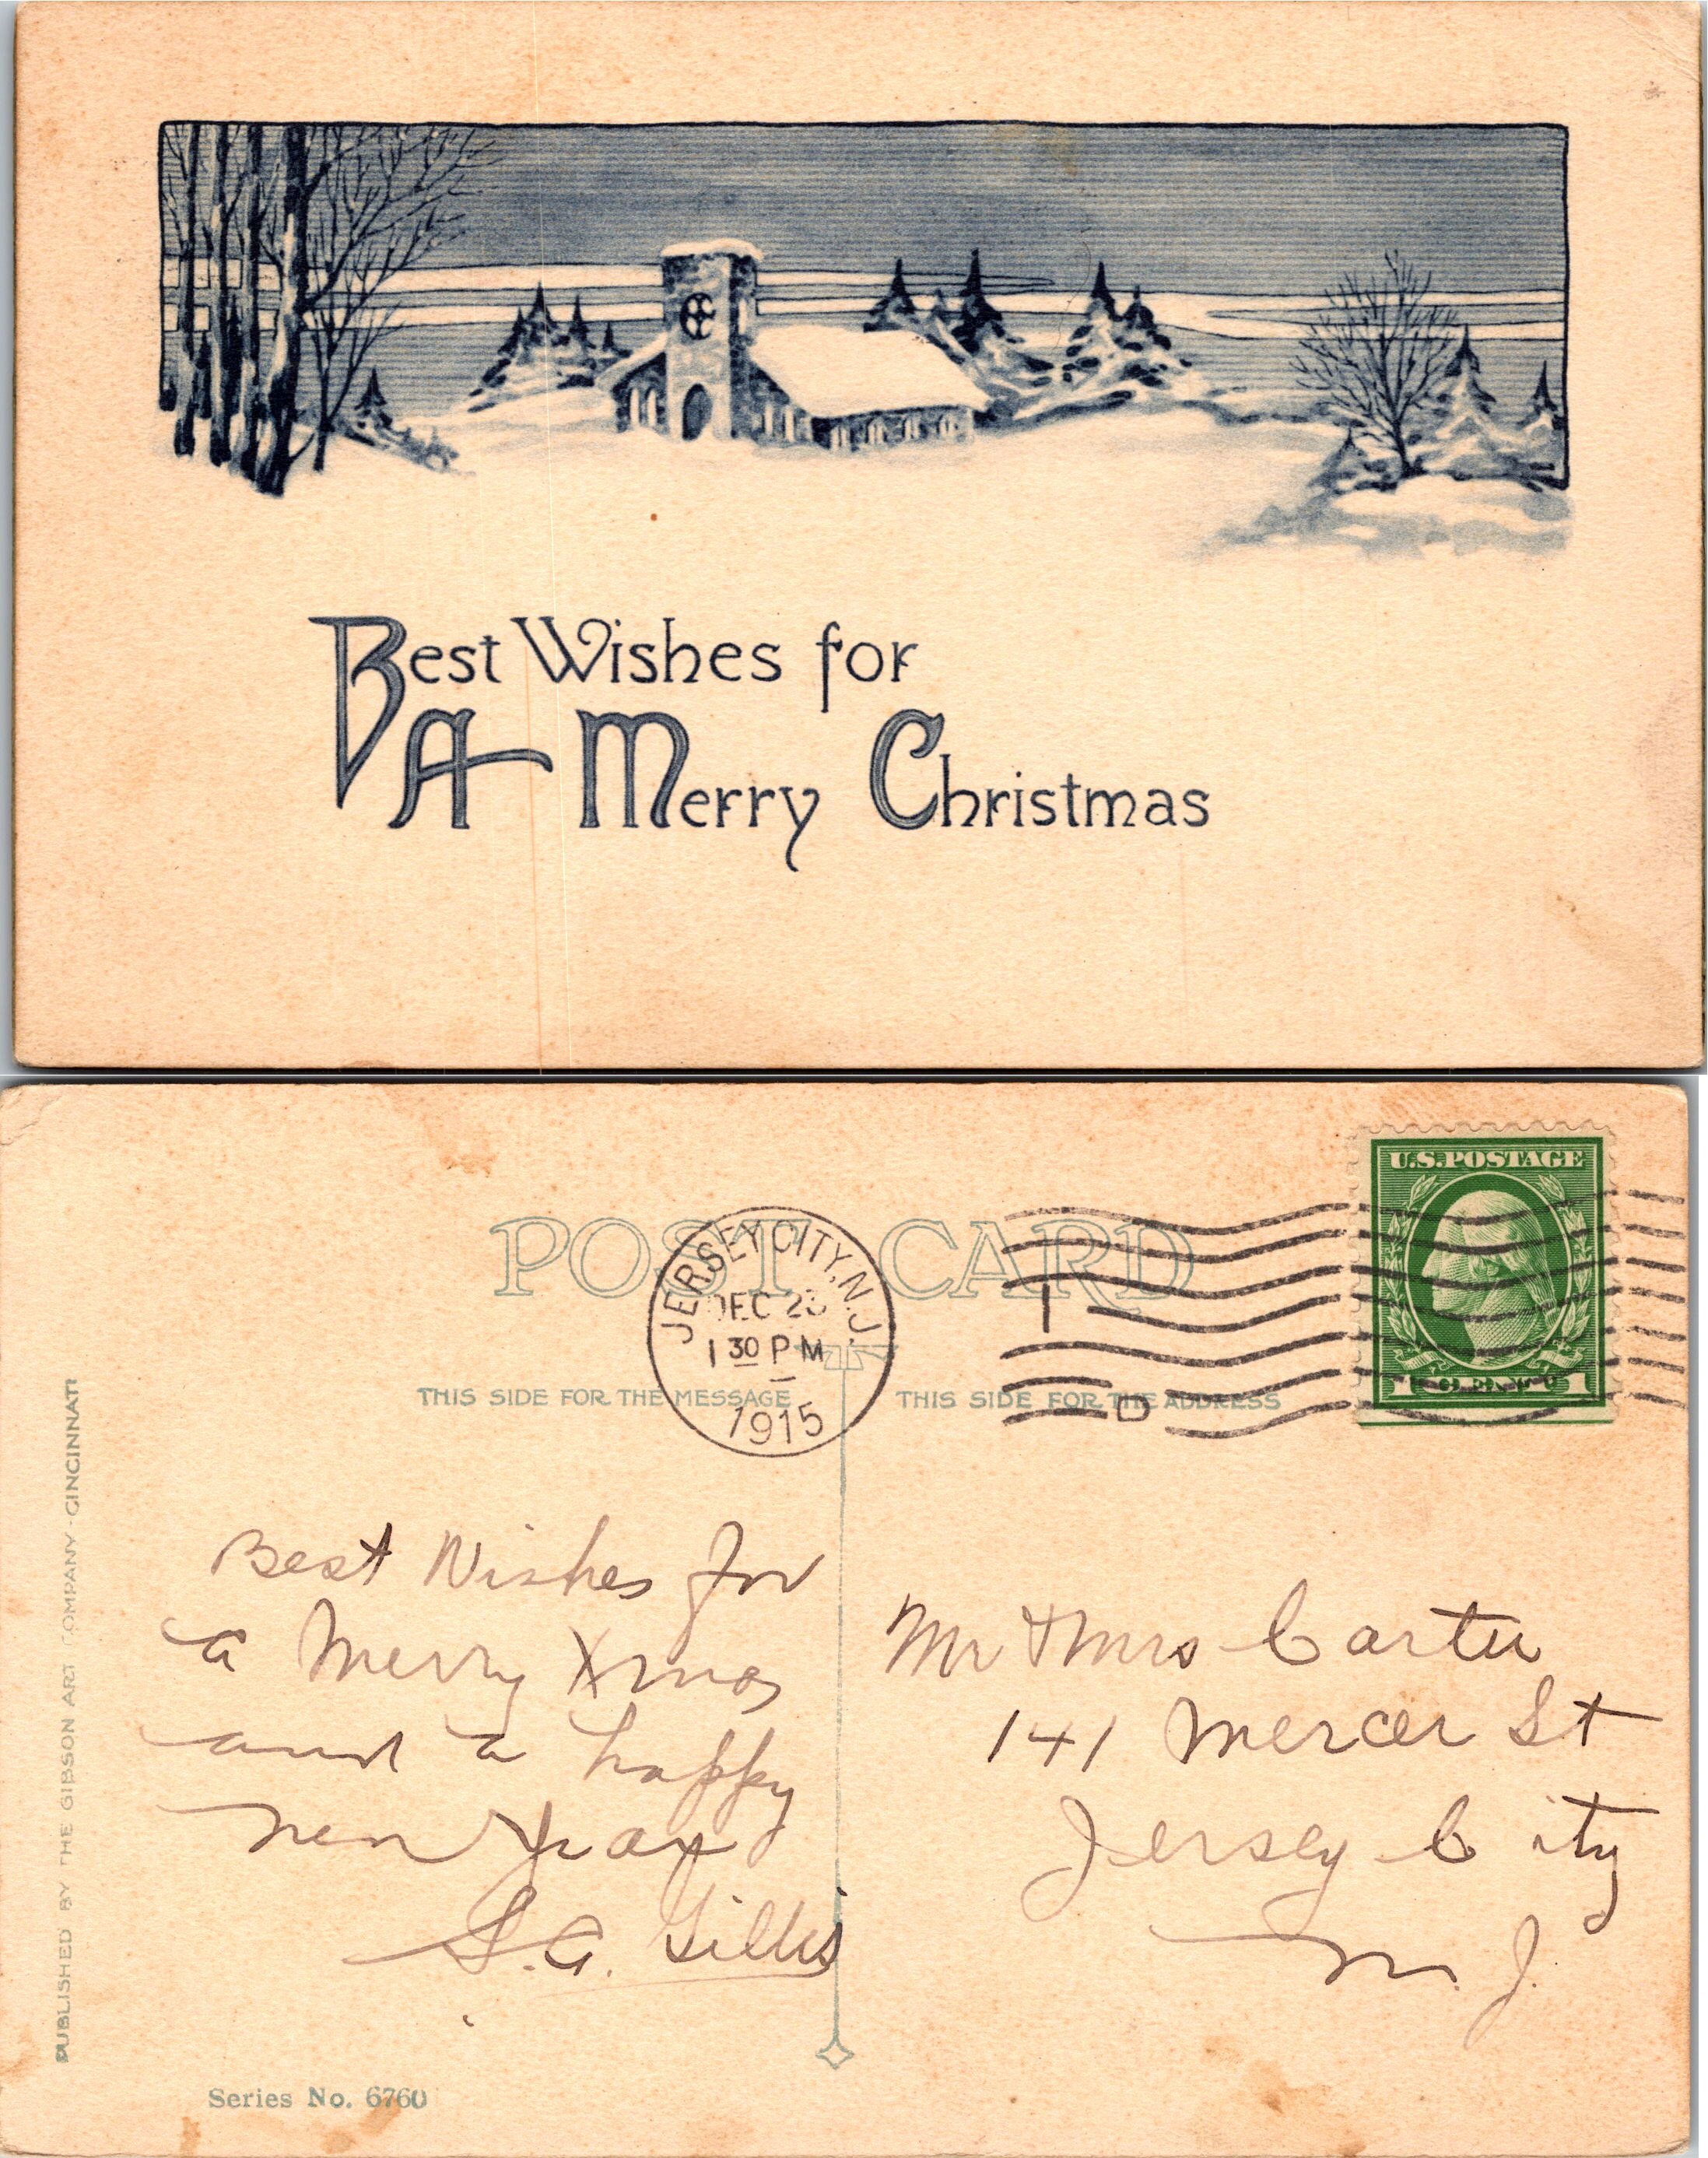 Best Wishes for
A Merry Christmas
POST CARD
JERSEY CITY, N.J.
DEC 23
1 30 P M
1915
1
D
U.S. POSTAGE
THIS SIDE FOR THE MESSAGE
THIS SIDE FOR THE ADDRESS
PUBLISHED BY THE GIBSON ART COMPANY - CINCINNATI
Best Wishes for
a Merry Xmas
and a happy
New Year
S. A. Gillis
Mr & Mrs Carter
141 Mercer St
Jersey City
N. J.
Series No. 6760